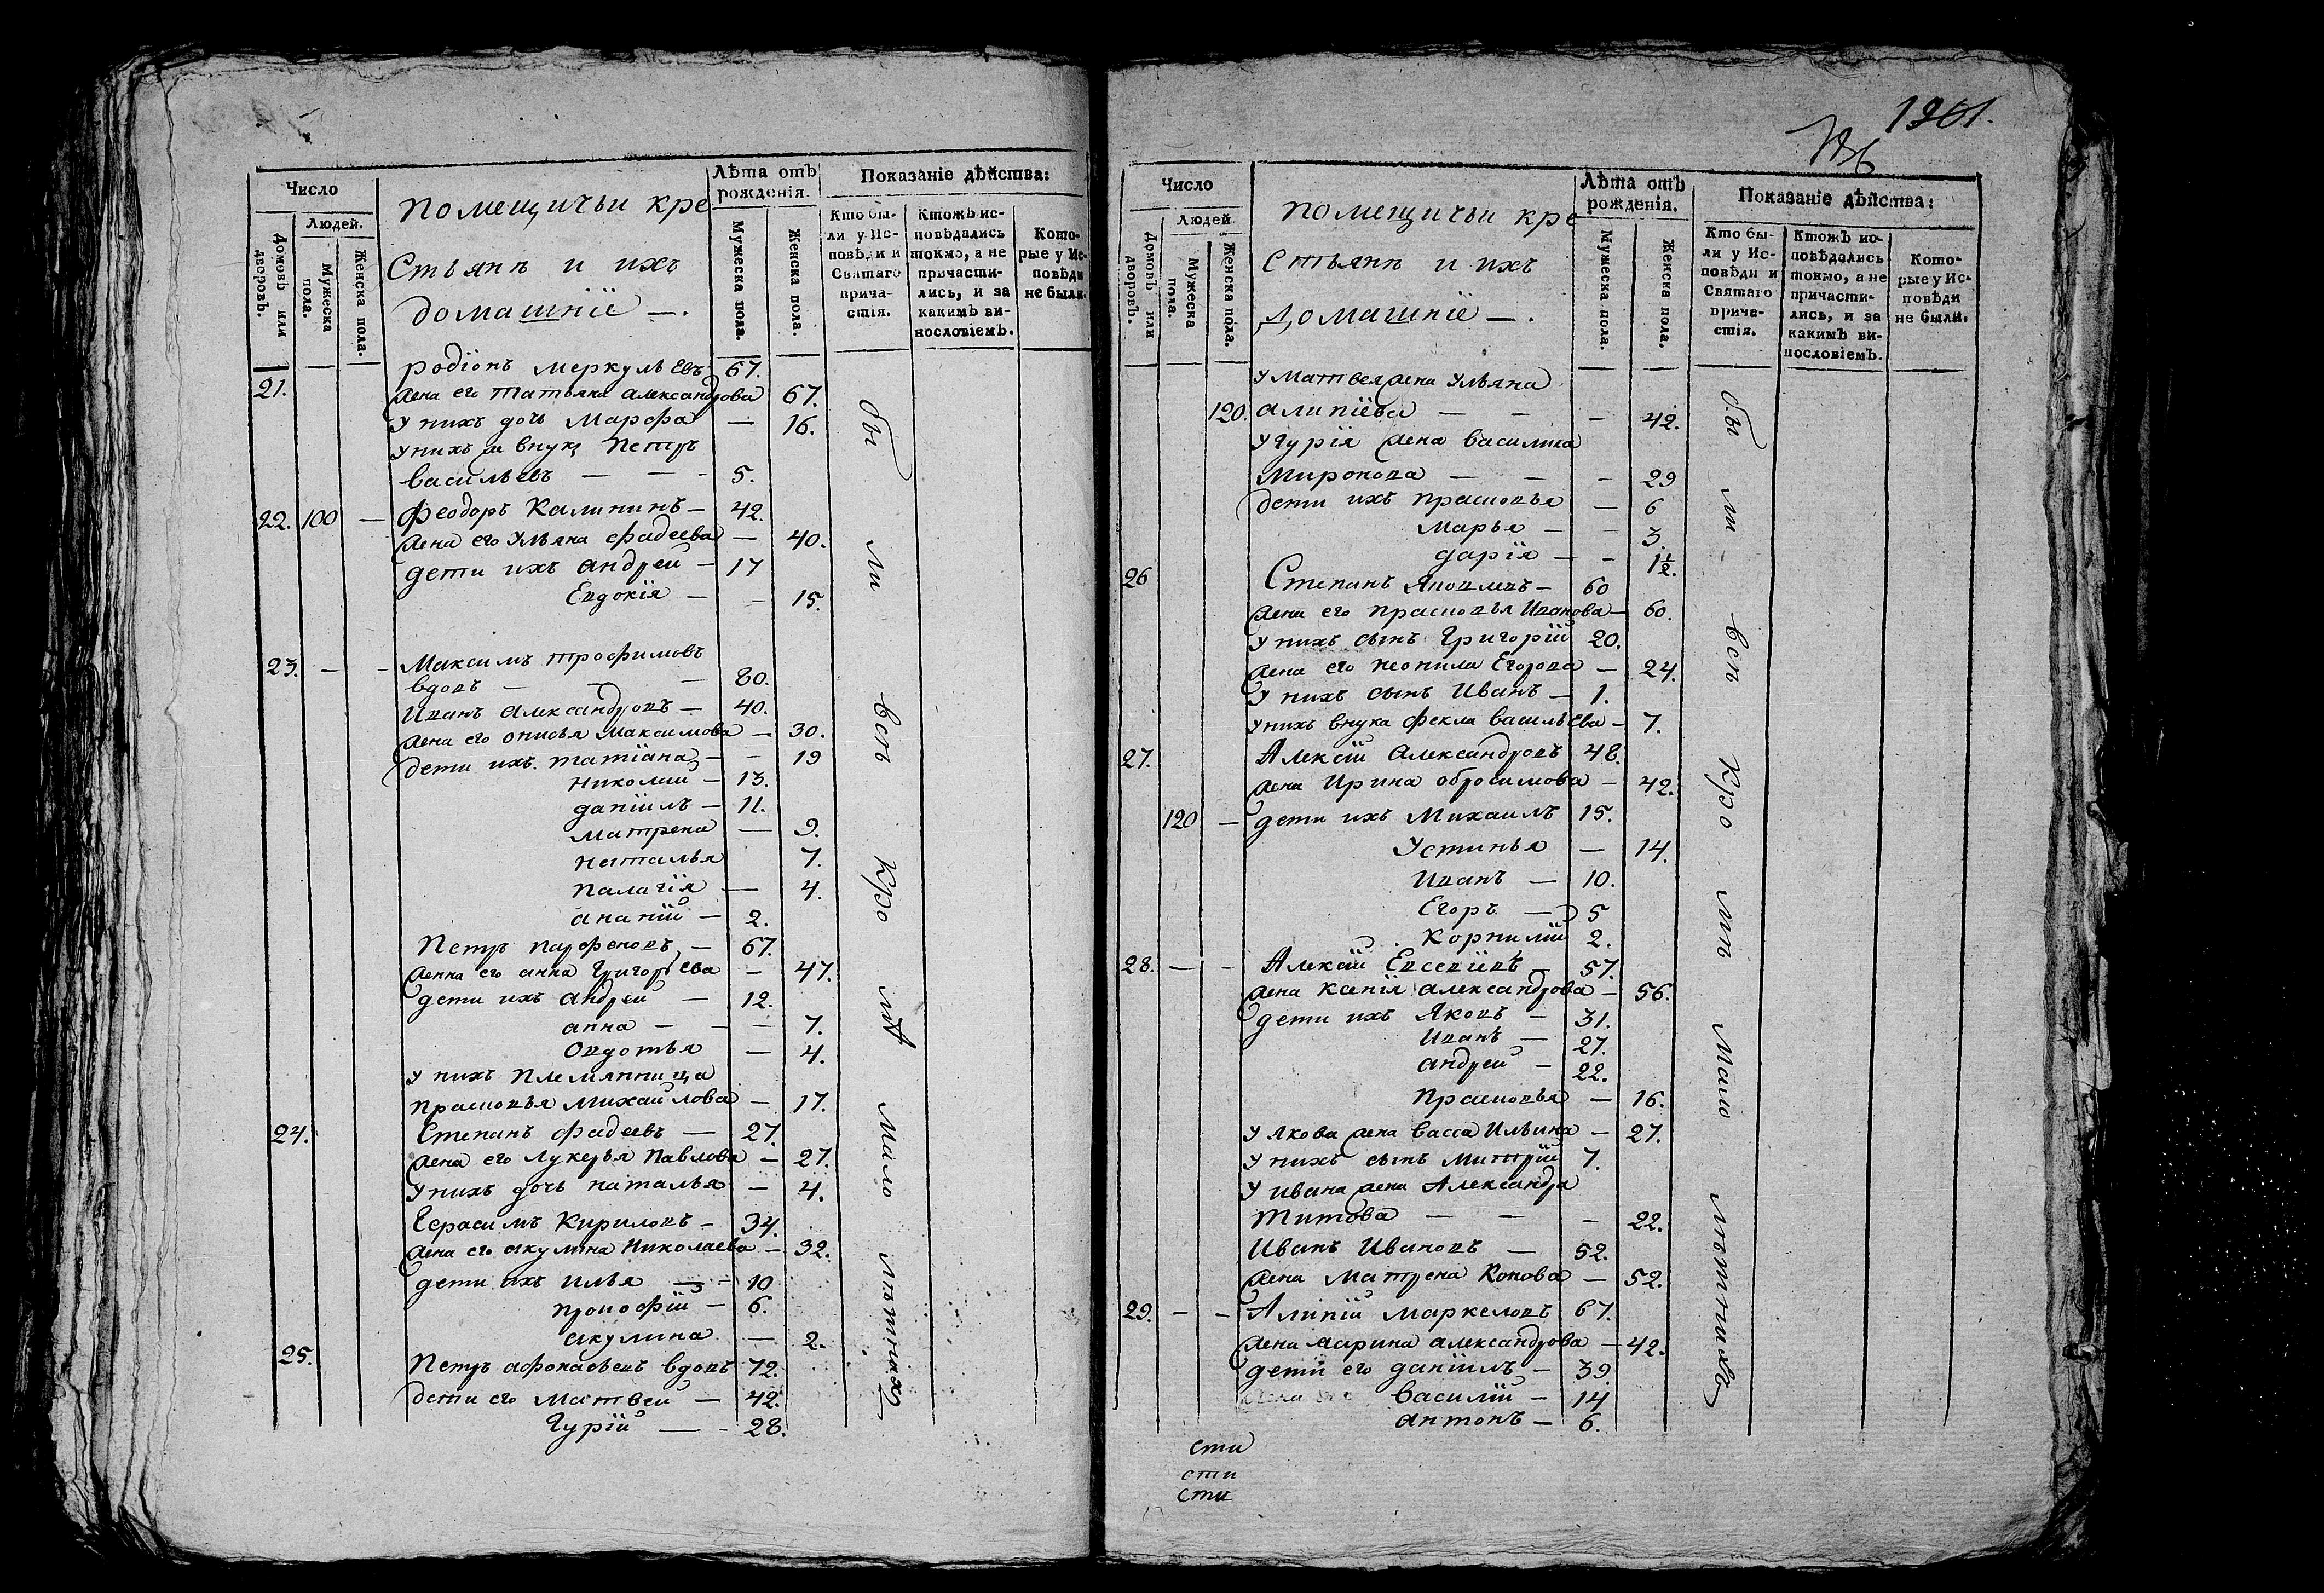 Число
Людей.
Домовъ или дворовъ.
Мужеска пола.
Женска пола.
помещичьи кре
стьянъ и ихъ
домашніе —.
Лѣта отъ рожденія.
Мужеска пола.
Женска пола.
Показаніе дѣйства:
Кто бы-
ли у Ис-
повѣди и
Святаго
прича-
стія.
Ктожъ ис-
повѣдались
токмо, а не
причасти-
лись, и за
какимъ ви-
нословіемъ.
Кото-
рые у Ис-
повѣди
не были.
21. родіонъ меркульевъ 67.
жена его татьяна александрова 67.
у нихъ дочь Марфа — 16.
у нихъ же внукъ Петръ
васильевъ — — - 5.
22. 100 — Феодоръ Калининъ — 42.
жена его Ульяна Фадеева — 40.
дети ихъ андрей — 17
Евдокія — — 15.
23. — — Максимъ трофимовъ
вдовъ — — — 80.
Иванъ Александровъ — 40.
жена его онисья Максимова — 30.
дети ихъ татіана — — 19
николай — 13.
даніилъ — 11.
матрена — 9.
наталья 7.
палагія — 4.
ананій — 2.
Петръ парфеновъ — 67.
женна его анна Григорьева — 47.
дети ихъ андрей — 12.
анна — — — 7.
Овдотья — 4.
у нихъ племянница
прасковья михайлова — 17.
24. Степанъ фадеевъ — 27.
жена его лукерья Павлова — 27.
у нихъ дочь наталья — 4.
Герасимъ Кириловъ — 34.
жена его акулина николаева — 32.
дети ихъ илья — — 10
прокофій — 6.
акулина — 2.
25. Петръ афонасьевъ вдовъ 72.
дети его Матвеи — 42.
Гурій — - 28.
бы ли всѣ Кро мѣ мало лѣтныхъ
1201.
Число
Людей
Домовъ или дворовъ.
Мужеска пола.
Женска пола.
помещичьи кре
стьянъ и ихъ
домашніе —.
Лѣта отъ рожденія.
Мужеска пола.
Женска пола.
Показаніе дѣйства:
Кто бы-
ли у Ис-
повѣди и
Святаго
прича-
стія.
Ктожъ ис-
повѣдались
токмо, а не
причасти-
лись, и за
какимъ ви-
нословіемъ.
Кото-
рые у Ис-
повѣди
не были.
у Матвея жена Ульяна
120. алипіева — — — 42.
у Гурія жена василиса
миронова — — - 29
дети ихъ прасковья — 6
Марья — — 3.
дарія — - 1½.
26 Степанъ Яковлевъ — 60
жена его прасковья Иванова — 60.
у нихъ сынъ Григорій 20.
жена его неонила Егорова — 24.
у нихъ сынъ Иванъ — 1.
у нихъ внука фекла васильева — 7.
27. Алексій Александровъ 48.
жена Ирина обросимова — 42.
120 — дети ихъ Михаилъ 15.
Устинья — 14.
Иванъ — 10.
Егоръ — 5
Корнилій 2.
28. — - Алексій Евсевіевъ — 57.
жена Ксенія александрова — 56.
дети ихъ Яковъ — 31.
Иванъ — 27.
андреи — 22.
Прасковья — 16.
у Якова жена васса Ильина — 27.
у нихъ сынъ Митрій 7.
у ивана жена Александра
Титова — — - 22.
Иванъ Ивановъ — 52.
жена Матрена Конова — 52.
29. — — Алипій Маркеловъ 67.
жена марина александрова — 42.
дети его даніилъ — 39.
василій — 14
антонъ — 6.
бы ли - всѣ Кро - мѣ мало лѣтныхъ
сти
сти
сти